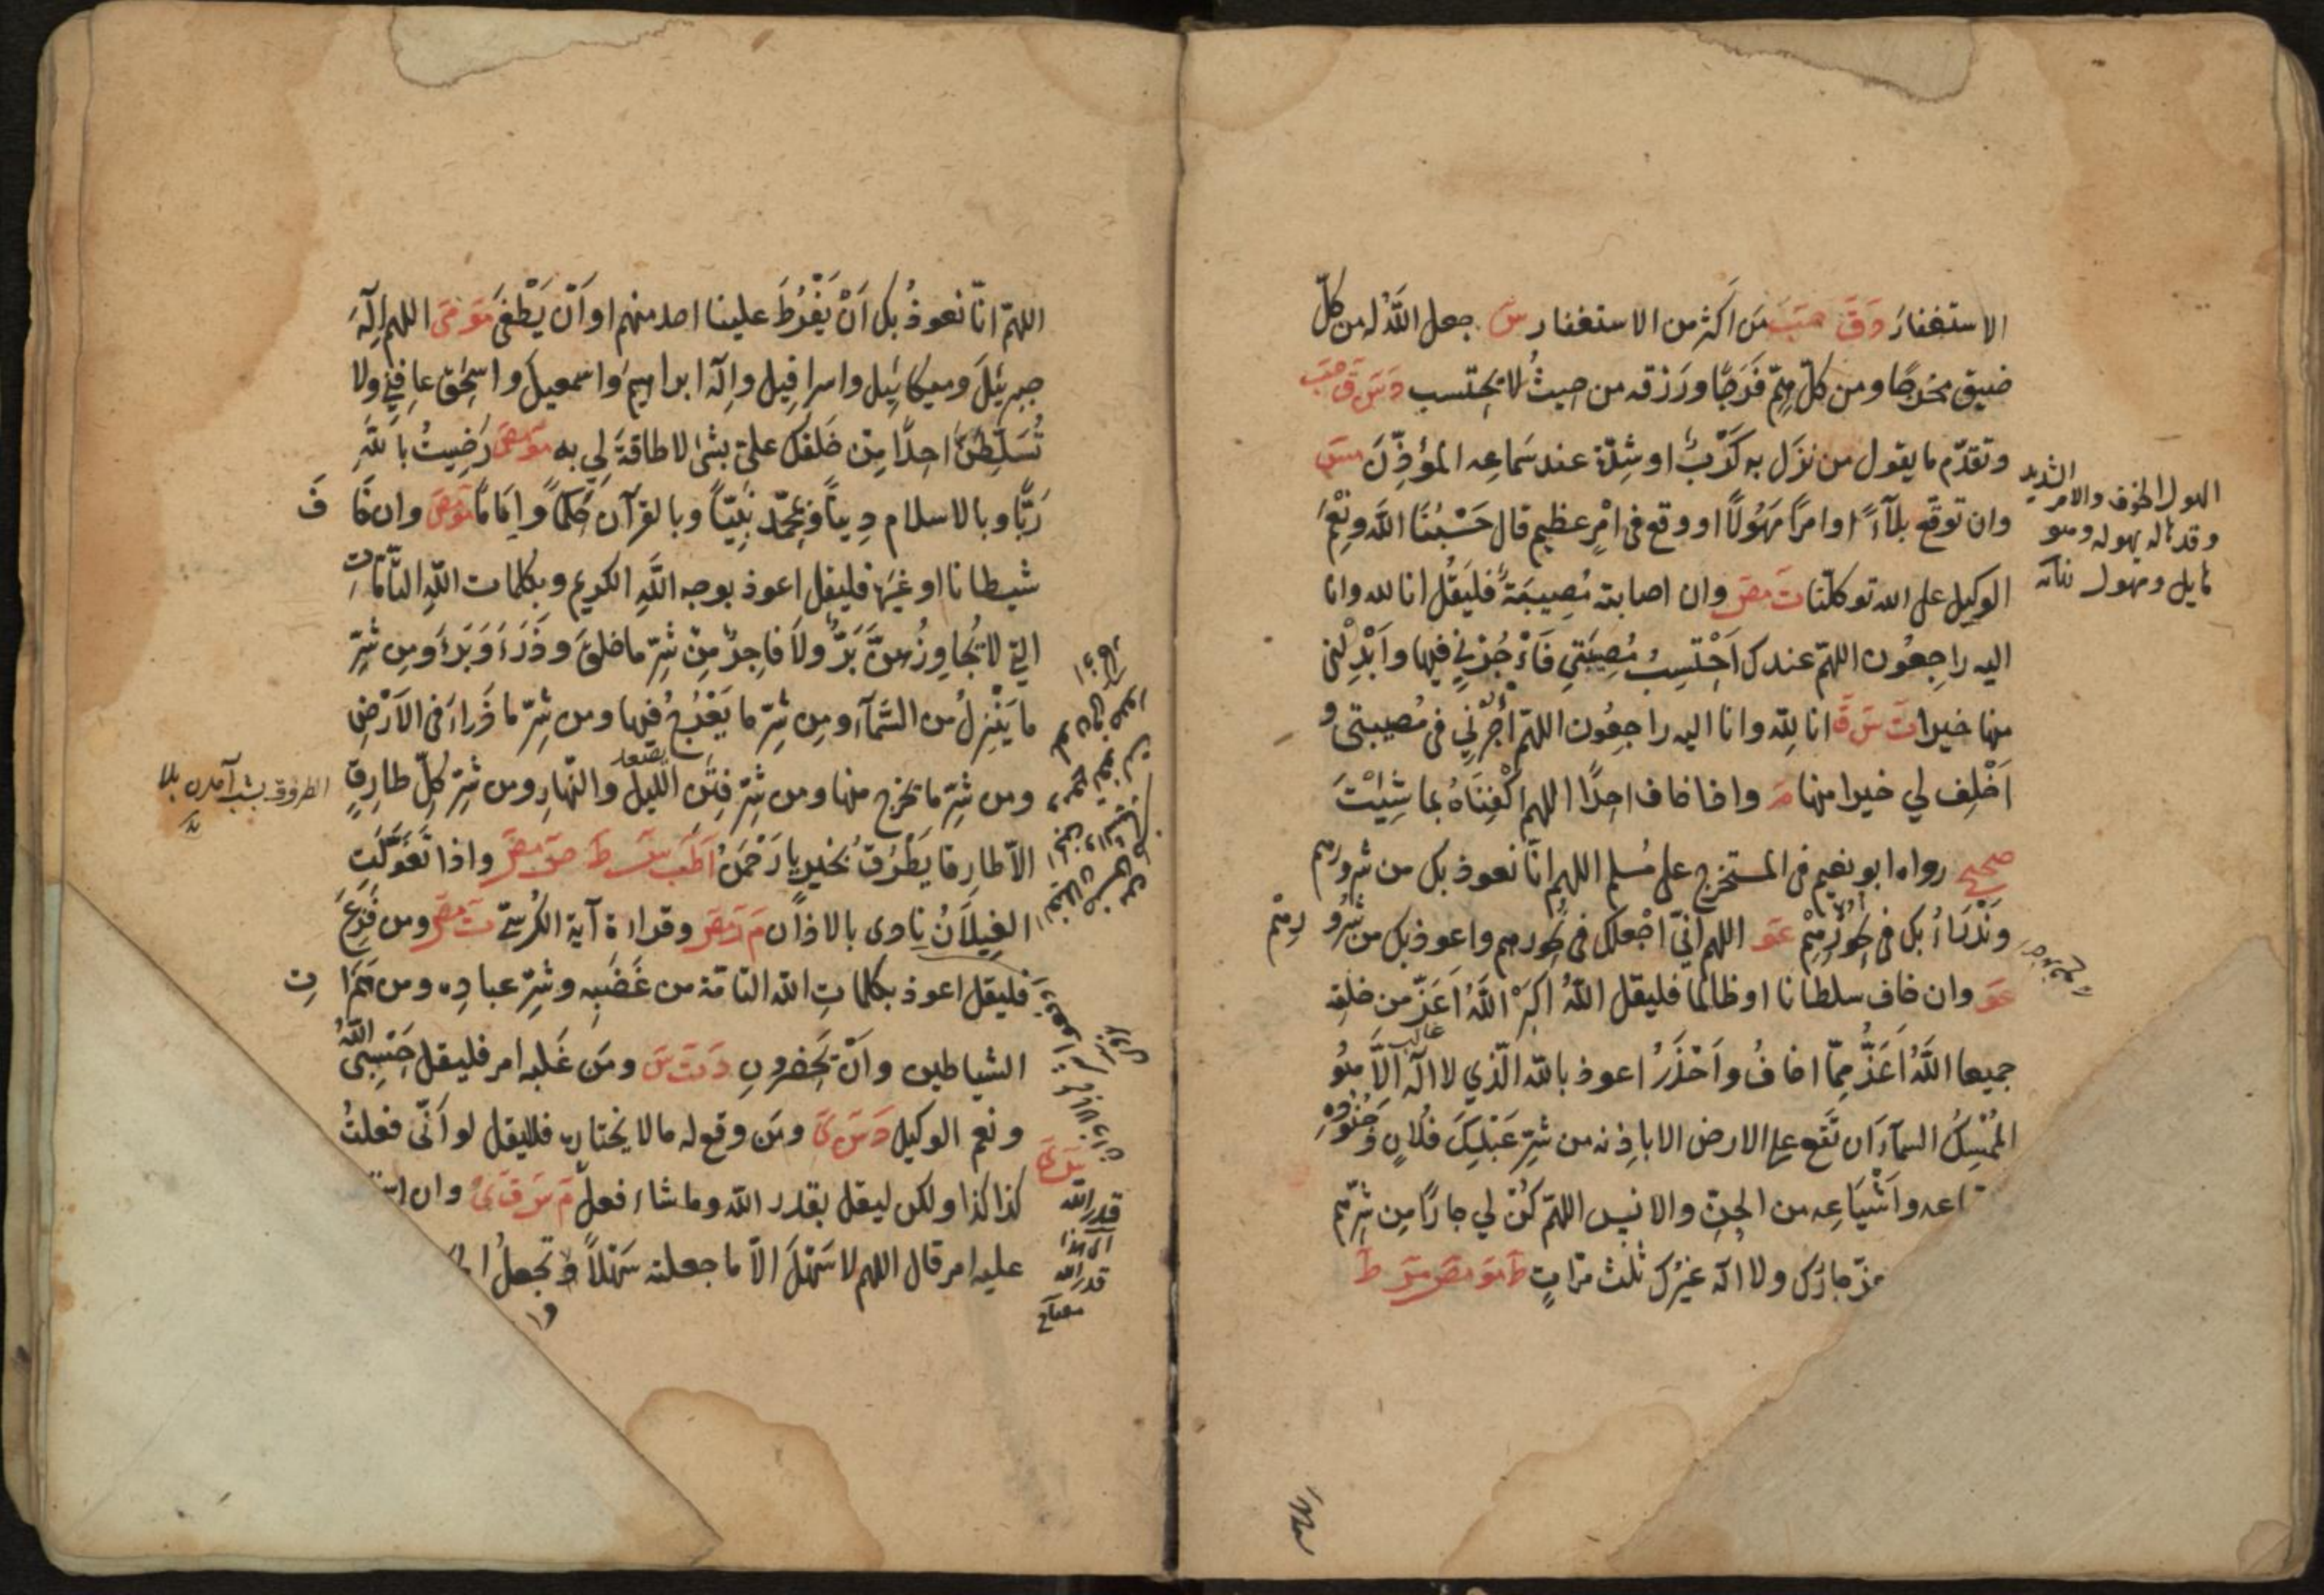 الاستغفارَ دَ قَ حبَ مَن اَكثر من الاستغفار س جعل اللهُ له من كلّ
ضيق مخرجًا ومن كلّ همّ فَرَجًا ورَزقه من حيثُ لا يحتسب دَ سَ قَ حبَ
وتقدّم ما يقول من نَزَل به كَرْبٌ او شِدّة عند سَماعِه المؤذّنَ مسَ
وان توقّع بلآءً او امرًا مَهُولًا او وقع فى امْرٍ عظيم قال حَسْبُنَا الله ونِعْمَ
الوكيل على الله توكلّنا تَ مصَ وان اصابته مُصِيبَةٌ فليَقُل انا لله وانا
اليه راجِعُون اللهمّ عندك اَحْتَسِبُ مُصِيبَتِي فَاْجُرْنِي فيها وَاَبْدِلْنى
منها خيرا تَ سَ قَ انا لِلّه وانا اليه راجِعُون اللهمّ اْجُرْنِي فى مُصيبتى و
اَخْلِف لي خيرا منها مَ واذا خاف احدًا اللهم اكْفِنَاهُ بما شِئْتَ
صحيح رواه ابو نعيم فى المستخرج على مُسلم اللهم انّا نعوذ بك من شرورهم
ونَدْرَاُ بك فى نحُورِهِمْ عَو اللهم انّى اَجْعلك فى نُحُورهم واعوذ بك من شُرُورِهِمْ
عَو وان خاف سلطانا او ظالما فليقل اللهُ اكبرْ اللهُ اَعَزّ من خلقِه
جميعا اللهُ اَعَزُّ مِمّا اخافُ واَحْذَرُ اعوذ بالله الّذي لا اله الّا هُو
المُمْسِكُ السمآءَ ان تَقَع على الارض الا باِذنه من شرّ عَبْدِكَ فُلانٍ وَجُنُودِهِ
اعه واَشْيَاعِه من الجنّ والانس اللهمّ كُنْ لي جارًا مِن شرّهم
عزّ جارُك ولا اله غيرُك ثلٰث مرّاتٍ طَ مو مصَ مَو طَ
الهول الخوف والامر الشديد
وقد هاله يهوله وهو
اللهمّ انّا نعوذُ بك اَنْ يَفْرُطَ علينا احد منهم او اَنْ يَطْغَى مَو مَى اللهم اِلٰهَ
جبرئيلَ وميكائيل واسرافيل واِلٰهَ ابراهيمَ واسمعيلَ واسحٰق عافِنِي ولا
تُسَلِّطَنَّ احدًا مِن خَلقك علىّ بشئ لا طاقةَ لي به مَو مصَ رَضِيتُ بالله
رَبًّا وبالاسلام دِينًا وَبمحمّد نَبِيًّا وبالقرآن حَكَمًا وَاِمَامًا مَو مصَ وان خَافَ
شيطانا او غيرَه فليقل اعوذ بوجه اللهِ الكريم وبكلمات اللهِ التَّامّاتِ
التي لا يُجَاوِزُهنَّ بَرٌّ ولا فاجرٌ مِنْ شرّ ما خلقَ وذَرَءَ وَبَرَءَ ومِن شرِّ
ما يَنْزِلُ من السّمآء ومِن شرّ ما يَعْرُجُ فيها ومن شرّ ما ذَراءَ فى الاَرْضِ
ومن شرّ ما يَخرج منها ومن شرّ فِتَن اللّيل والنّهارِ ومن شرّ كلّ طارقٍ
الاّ طارقا يَطْرُقُ بخيرٍ يا رَحْمٰنُ اَ طَب سَ طَ صَ مصَ واذا تَغَوَّلَت
الغِيلَانُ نادى بالاذان مَ مصَ وقراءة آية الكُرسىّ تَ مصَ ومن فَزِعَ
فليقل اعوذ بكلماتِ الله التامّة من غَضَبِه وشرّ عبادِه ومن هَمَزَاتِ
الشياطين وانْ يَحضرونِ دَ تَ سَ ومَن غَلبه امر فليقل حَسْبِىَ اللهُ
ونعم الوكيل دَ سَ ىَ ومَن وقع له ما لا يختارُه فلايقل لو اَنّى فعلتُ
كذا كذا ولكن ليقل بقدر الله وما شاء فعل مَ سَ قَ ىَ وان است
عليه امر قال اللهم لا سَهْلَ الاّ ما جعلته سَهْلًا و تجعلُ
الطروق بشب آمدن
قدر الله
اى هذا
قدر الله